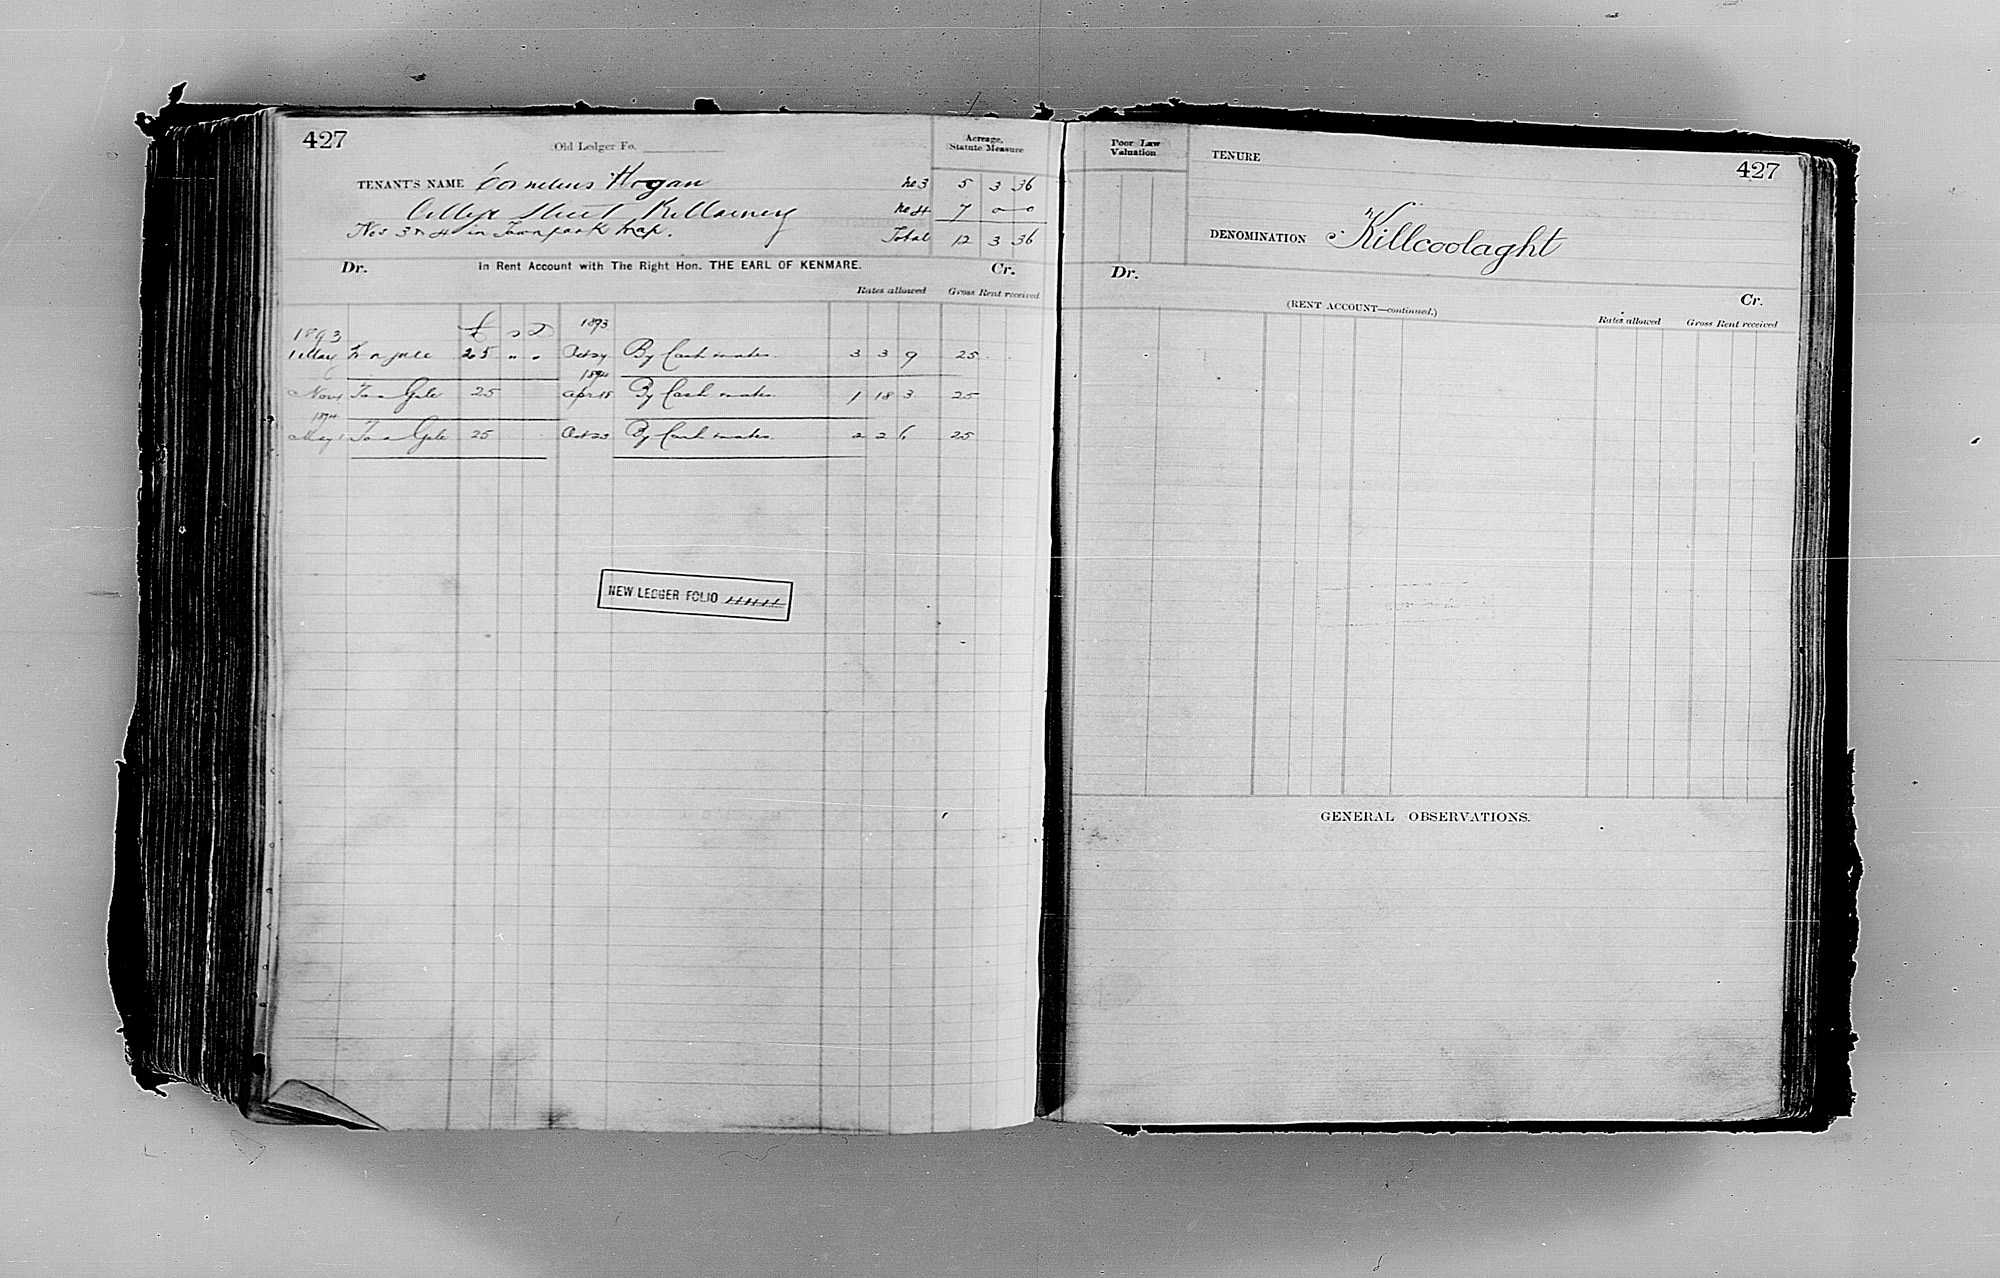 427
Old Ledger Fo.
Acreage,
Statute Measure
TENANT'S NAME Cornelius Hogan No 3 5 3 36
College Street Killarney No 4 7 0 0
Nos 3 & 4 in Townpark Map. Total 12 3 36
Dr. In Rent Account with The Right Hon. THE EARL OF KENMARE. Cr.
Rates allowed Gross Rent received
1893 £ s d 1893
1 May 25 " " Oct 24 By Cash 3 3 9 25
1894
Nov 1 To a Gale 25 Apr 18 By Cash 1 18 3 25
1894
May 1 To a Gale 25 Oct 23 By Cash 2 2 6 25
NEW LEDGER FOLIO
Poor Law
Valuation
TENURE
427
DENOMINATION Killcoolaght
Dr.
Cr.
(RENT ACCOUNT—continued.)
Rates allowed Gross Rent received
GENERAL OBSERVATIONS.